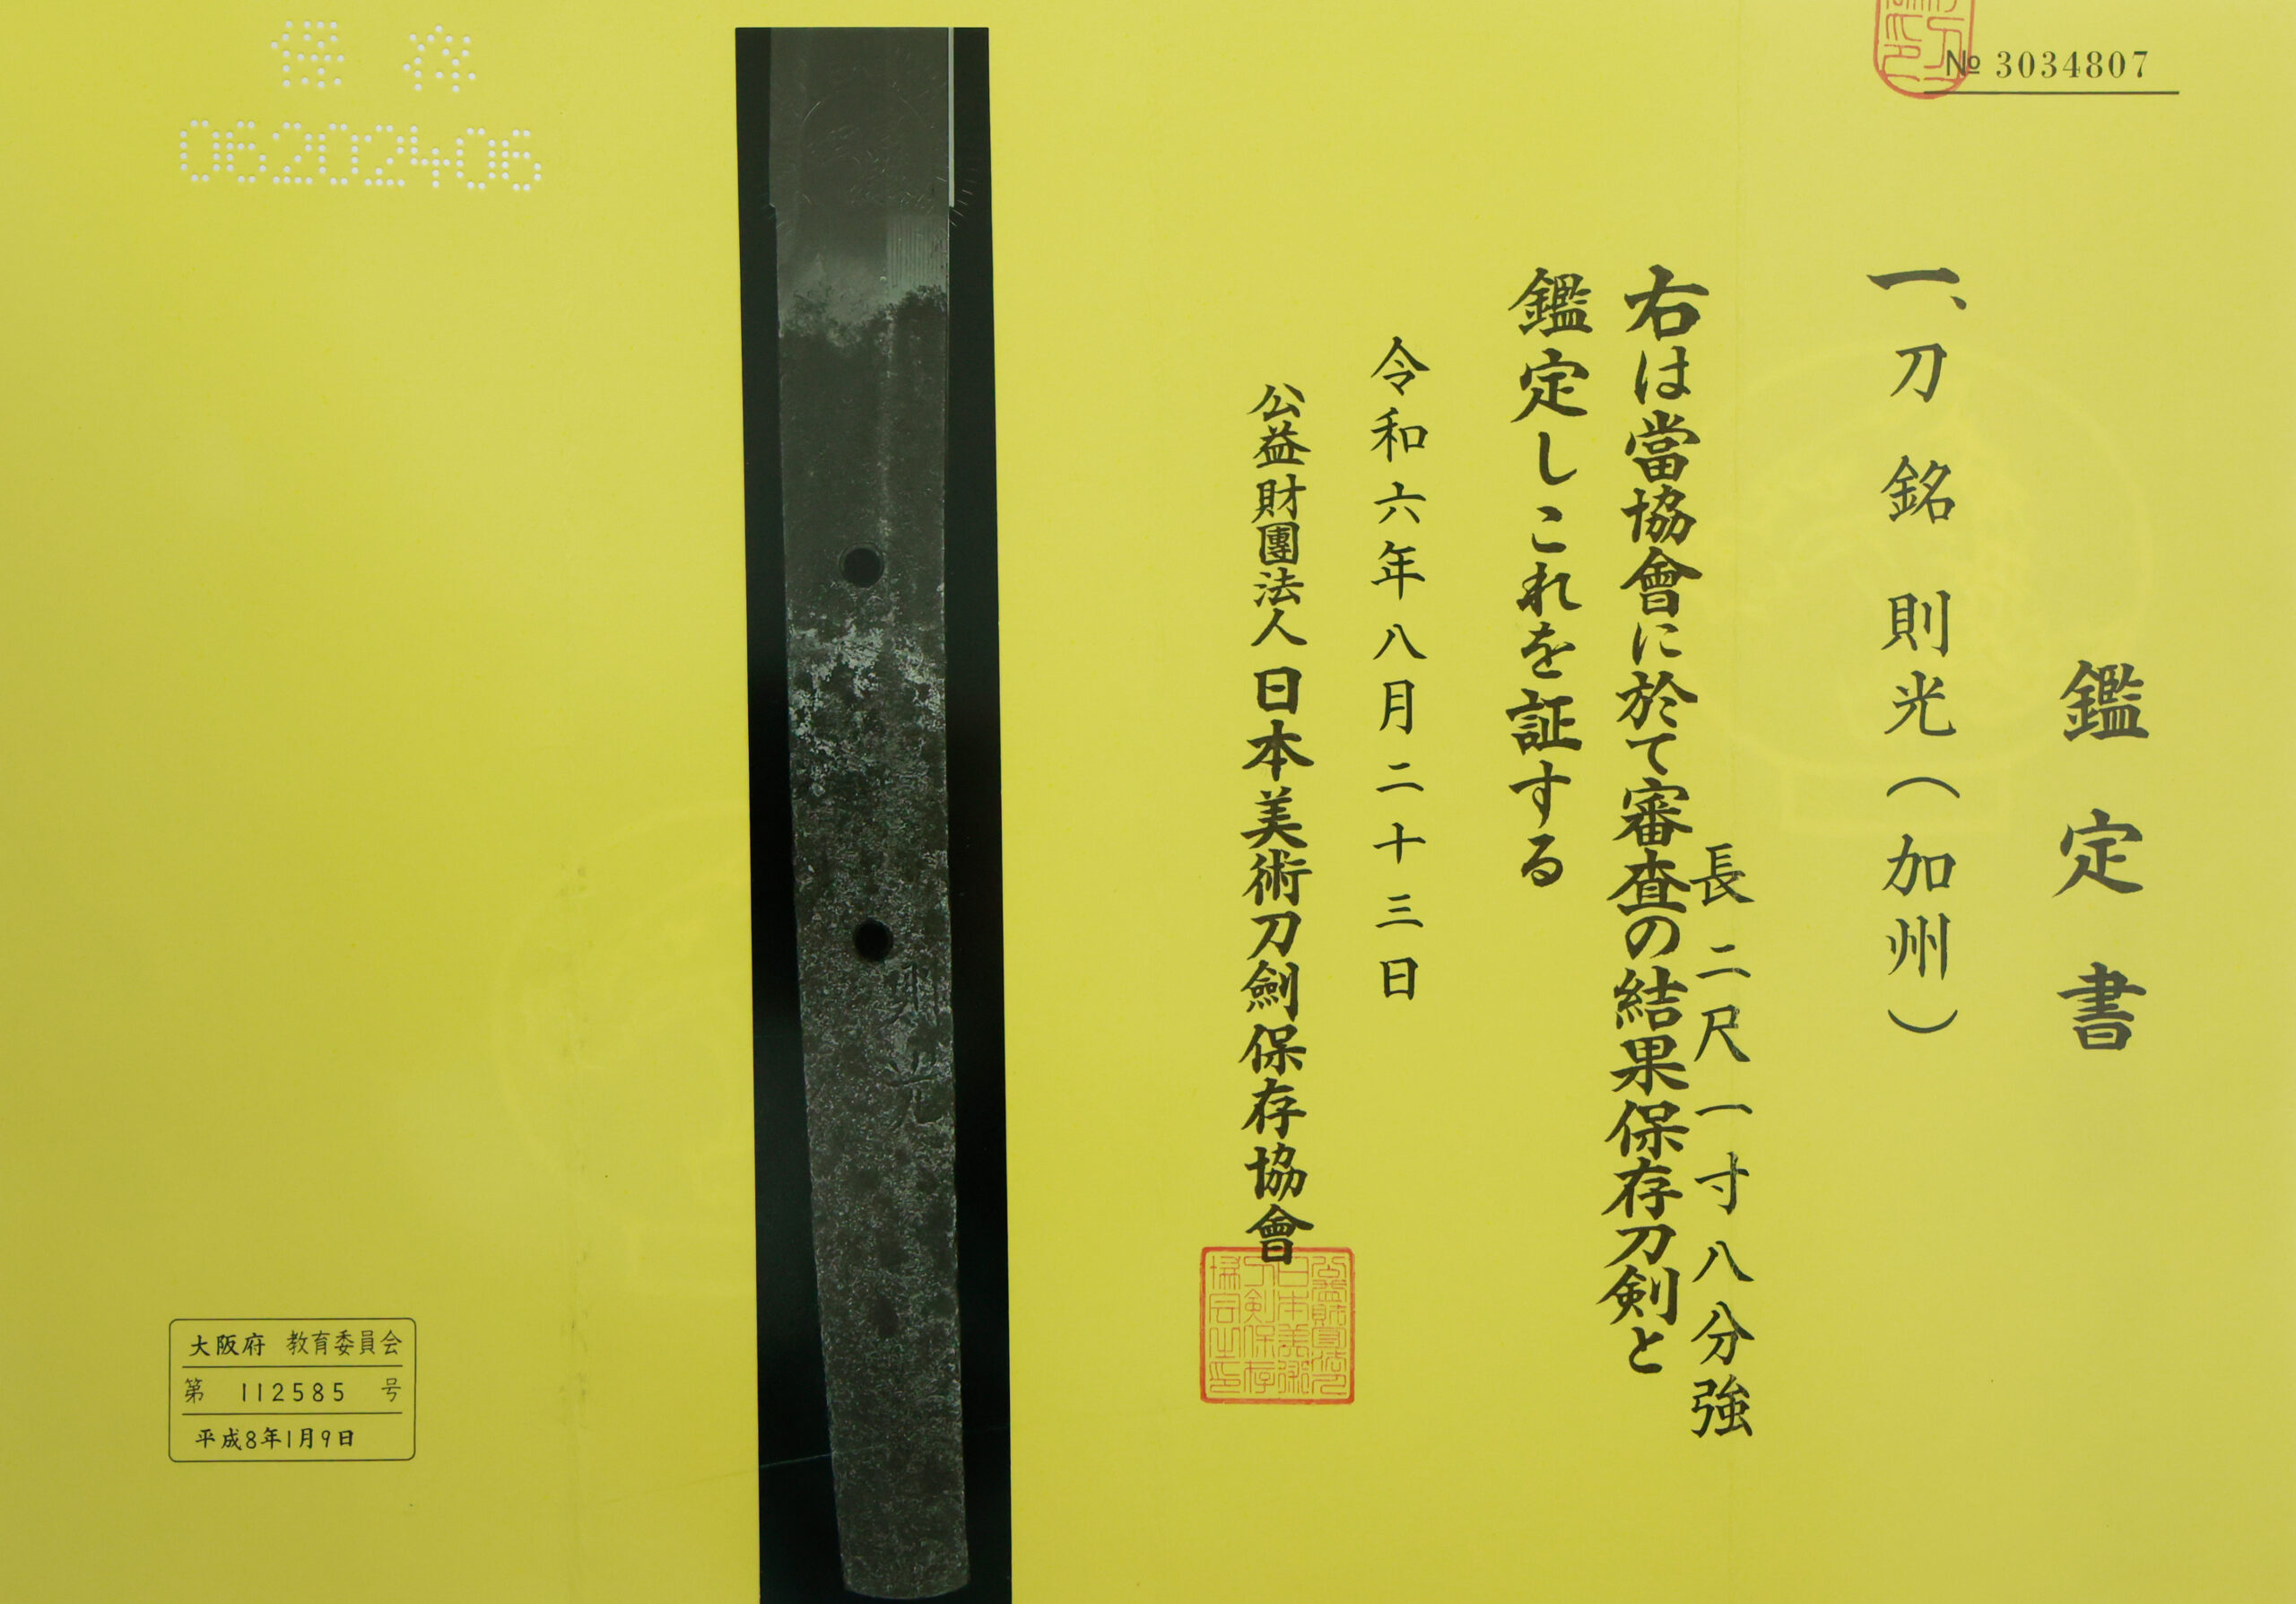 № 3034807
鑑定書
一、刀 銘 則光（加州）
長二尺一寸八分強
右は當協會に於て審査の結果保存刀剣と
鑑定しこれを証する
令和六年八月二十三日
公益財團法人日本美術刀劍保存協會
則光
保存
06202406
大阪府 教育委員会
第 112585 号
平成8年1月9日